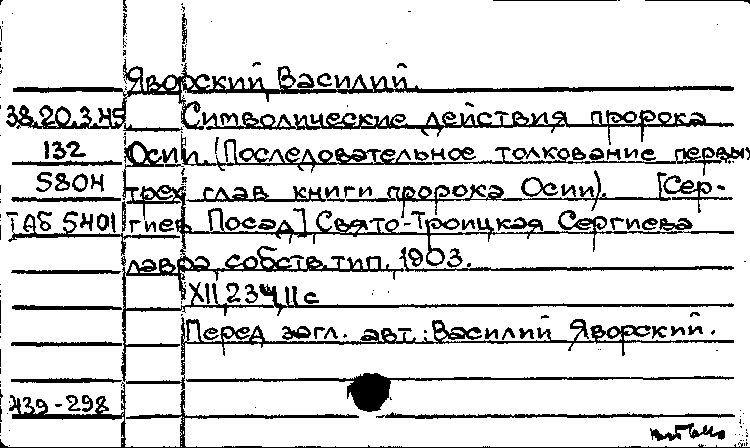 Яворский, Василий.
38.20.3.45 Символические действия пророка
132 Осии. (Последовательное толкование первых
5804 трех глав книги пророка Осии). [Сер-
ТАб 5401 гиев Посад] Свято-Троицкая Сергиева
лавра, собств. тип., 1903.
XII, 234, II с
Перед загл. авт.: Василий Яворский.
439-298